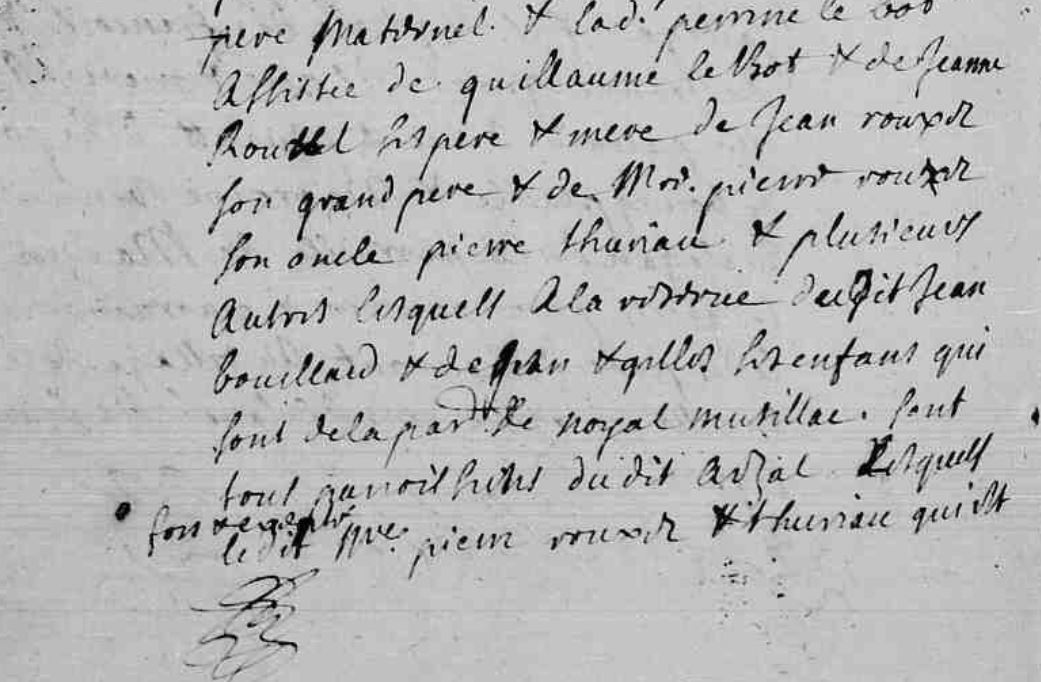 pere maternel. & lad. perrine le bot
Assistee de guillaume le Bot & de Jeanne
Rouxel ses pere & mere de Jean rouxel
son grand pere & de Mre. pierre rouxel
son oncle pierre thuriau & plusieurs
Autres lesquels A la reserve du dit Jean
bouillard & de Jean & gilles ses enfans qui
sont de la par. de noyal musillac. sont
tous paroissiens du dit Arzal. Lesquels
fors & excepté
le dit Mre. pierre rouxel & thuriau qui ist